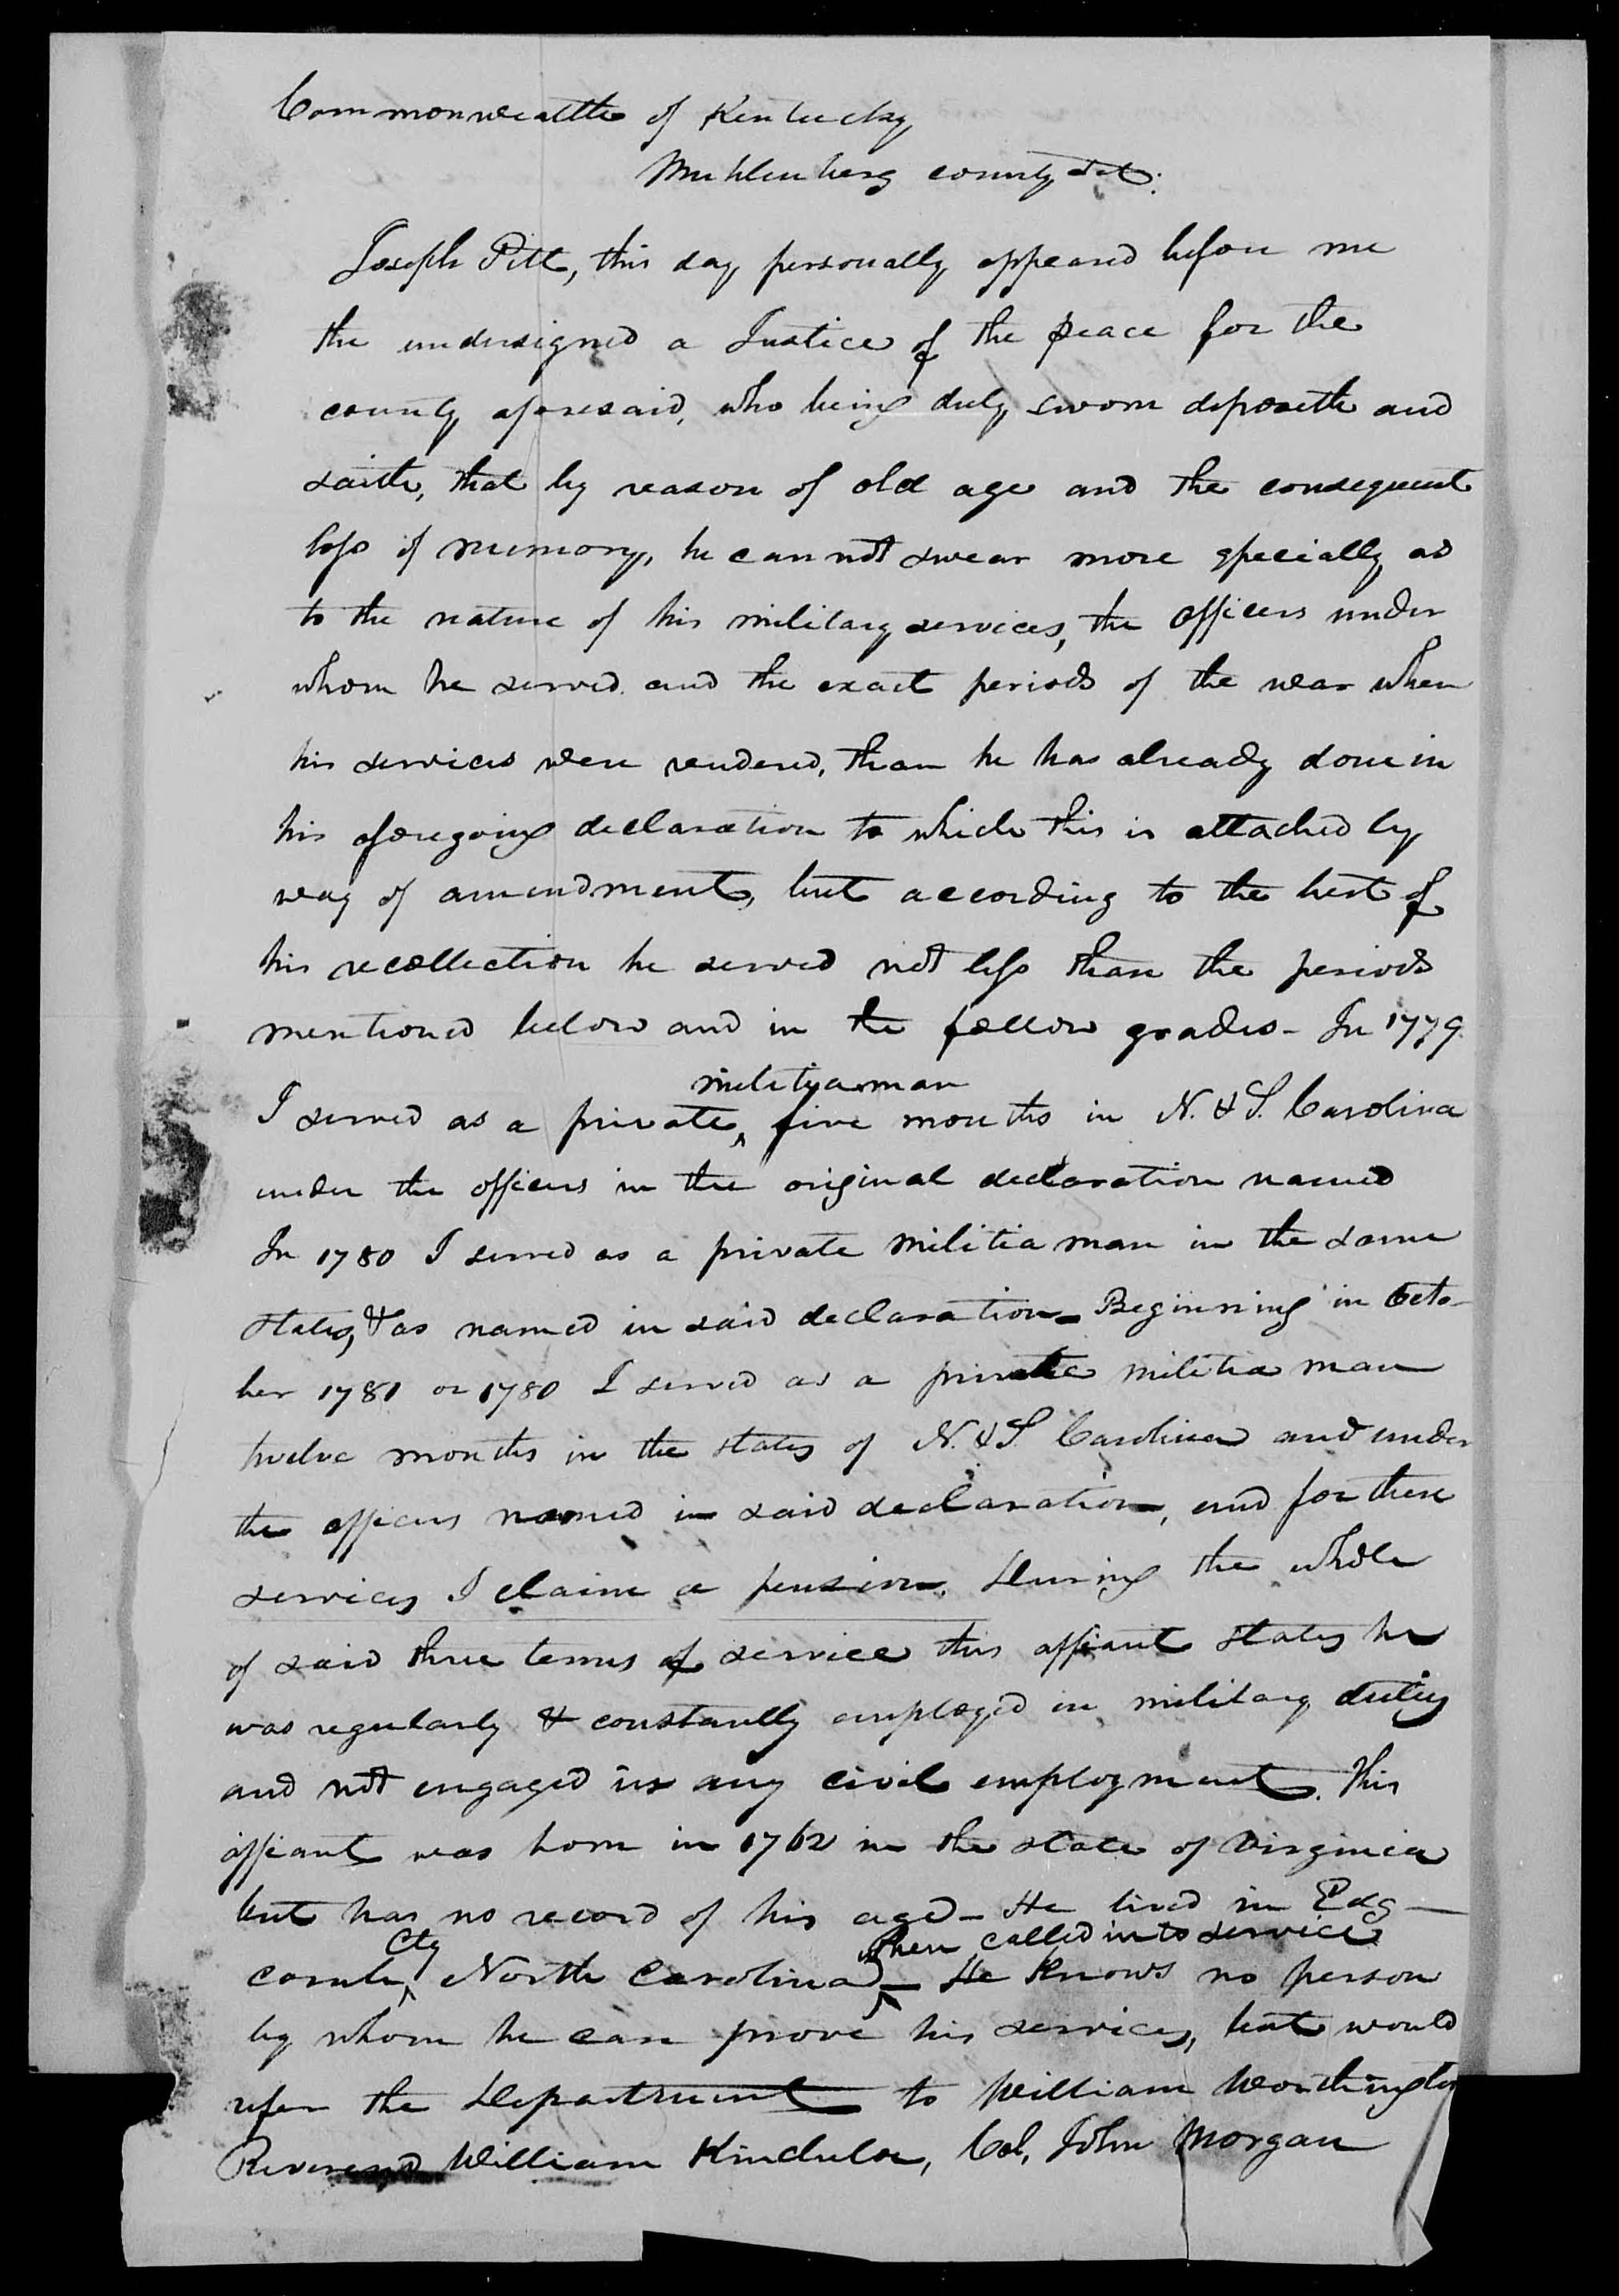 Commonwealth of Kentucky
Muhlenberg county Sct.
Joseph Pitt, this day personally appeared before me
the undersigned a Justice of the peace for the
county aforesaid, who being duly sworn deposeth and
saith, that by reason of old age and the consequent
loss of memory, he cannot swear more specially as
to the nature of his military services, the officers under
whom he served and the exact periods of the war when
his services were rendered, than he has already done in
his aforegoing declaration to which this is attached by
way of amendment, but according to the best of
his recollection he served not less than the periods
mentioned below and in the follow grades - In 1779
militiaman
I served as a private ^ five months in N. & S. Carolina
under the officers in the original declaration named
In 1780 I served as a private militia man in the same
states, & as named in said declaration - Beginning in Octo-
ber 1781 or 1780 I served as a private militia man
twelve months in the states of N. & S. Carolina and under
the officers named in said declaration, and for these
services I claim a pension. During the whole
of said three terms of service this affiant states he
was regularly & constantly employed in military duty
and not engaged in any civil employment. This
affiant was born in 1762 in the state of Virginia
but has no record of his age - He lived in Edg-
Cty when called into service
comb ^ North Carolina ^ - He knows no person
by whom he can prove his services, but would
refer the Department to William Worthington
Reverend William Kincheloe, Col. John Morgan